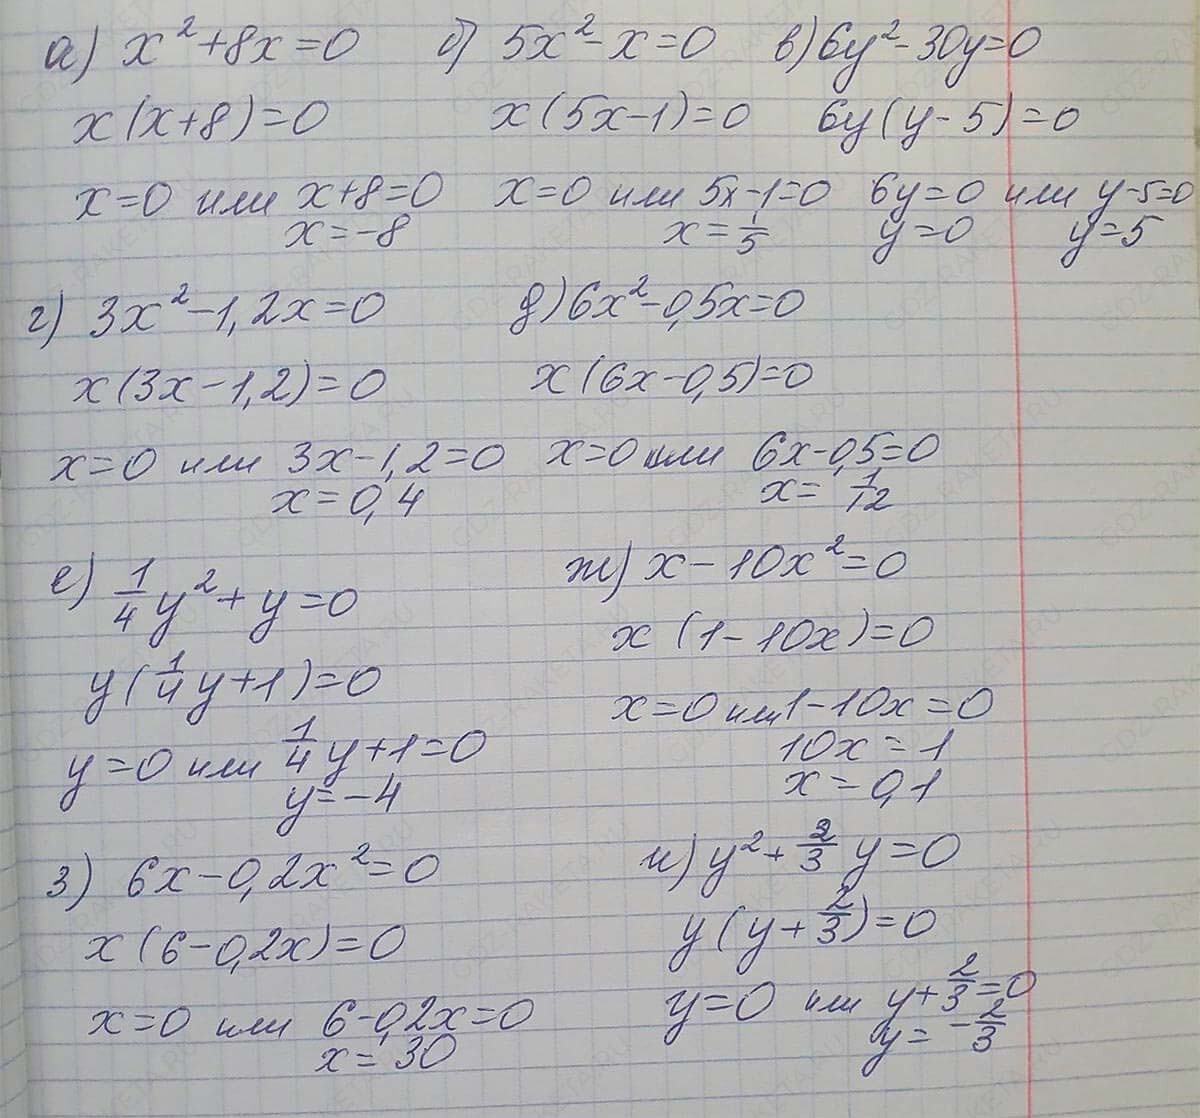 а) x²+8x=0
x(x+8)=0
x=0 или x+8=0
x=-8
б) 5x²-x=0
x(5x-1)=0
x=0 или 5x-1=0
x=1/5
в) 6y²-30y=0
6y(y-5)=0
6y=0 или y-5=0
y=0 y=5
г) 3x²-1,2x=0
x(3x-1,2)=0
x=0 или 3x-1,2=0
x=0,4
д) 6x²-0,5x=0
x(6x-0,5)=0
x=0 или 6x-0,5=0
x=1/12
е) 1/4y²+y=0
y(1/4y+1)=0
y=0 или 1/4y+1=0
y=-4
ж) x-10x²=0
x(1-10x)=0
x=0 или 1-10x=0
10x=1
x=0,1
з) 6x-0,2x²=0
x(6-0,2x)=0
x=0 или 6-0,2x=0
x=30
и) y²+2/3y=0
y(y+2/3)=0
y=0 или y+2/3=0
y=-2/3
GDZ-RAKETA.RU